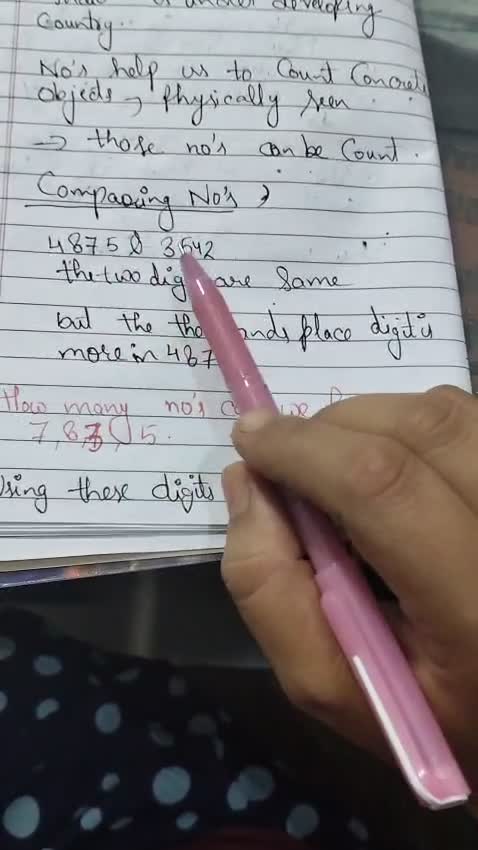 is under developing
Country.
No's help us to Count Concrete
Objects → Physically seen
→ those no's can be Count.
Comparing No's →
4875 & 3542
the two digits are Same
but the thousands place digit is
more in 487
How many no's can we
7, 8, 3, 5.
Using these digits